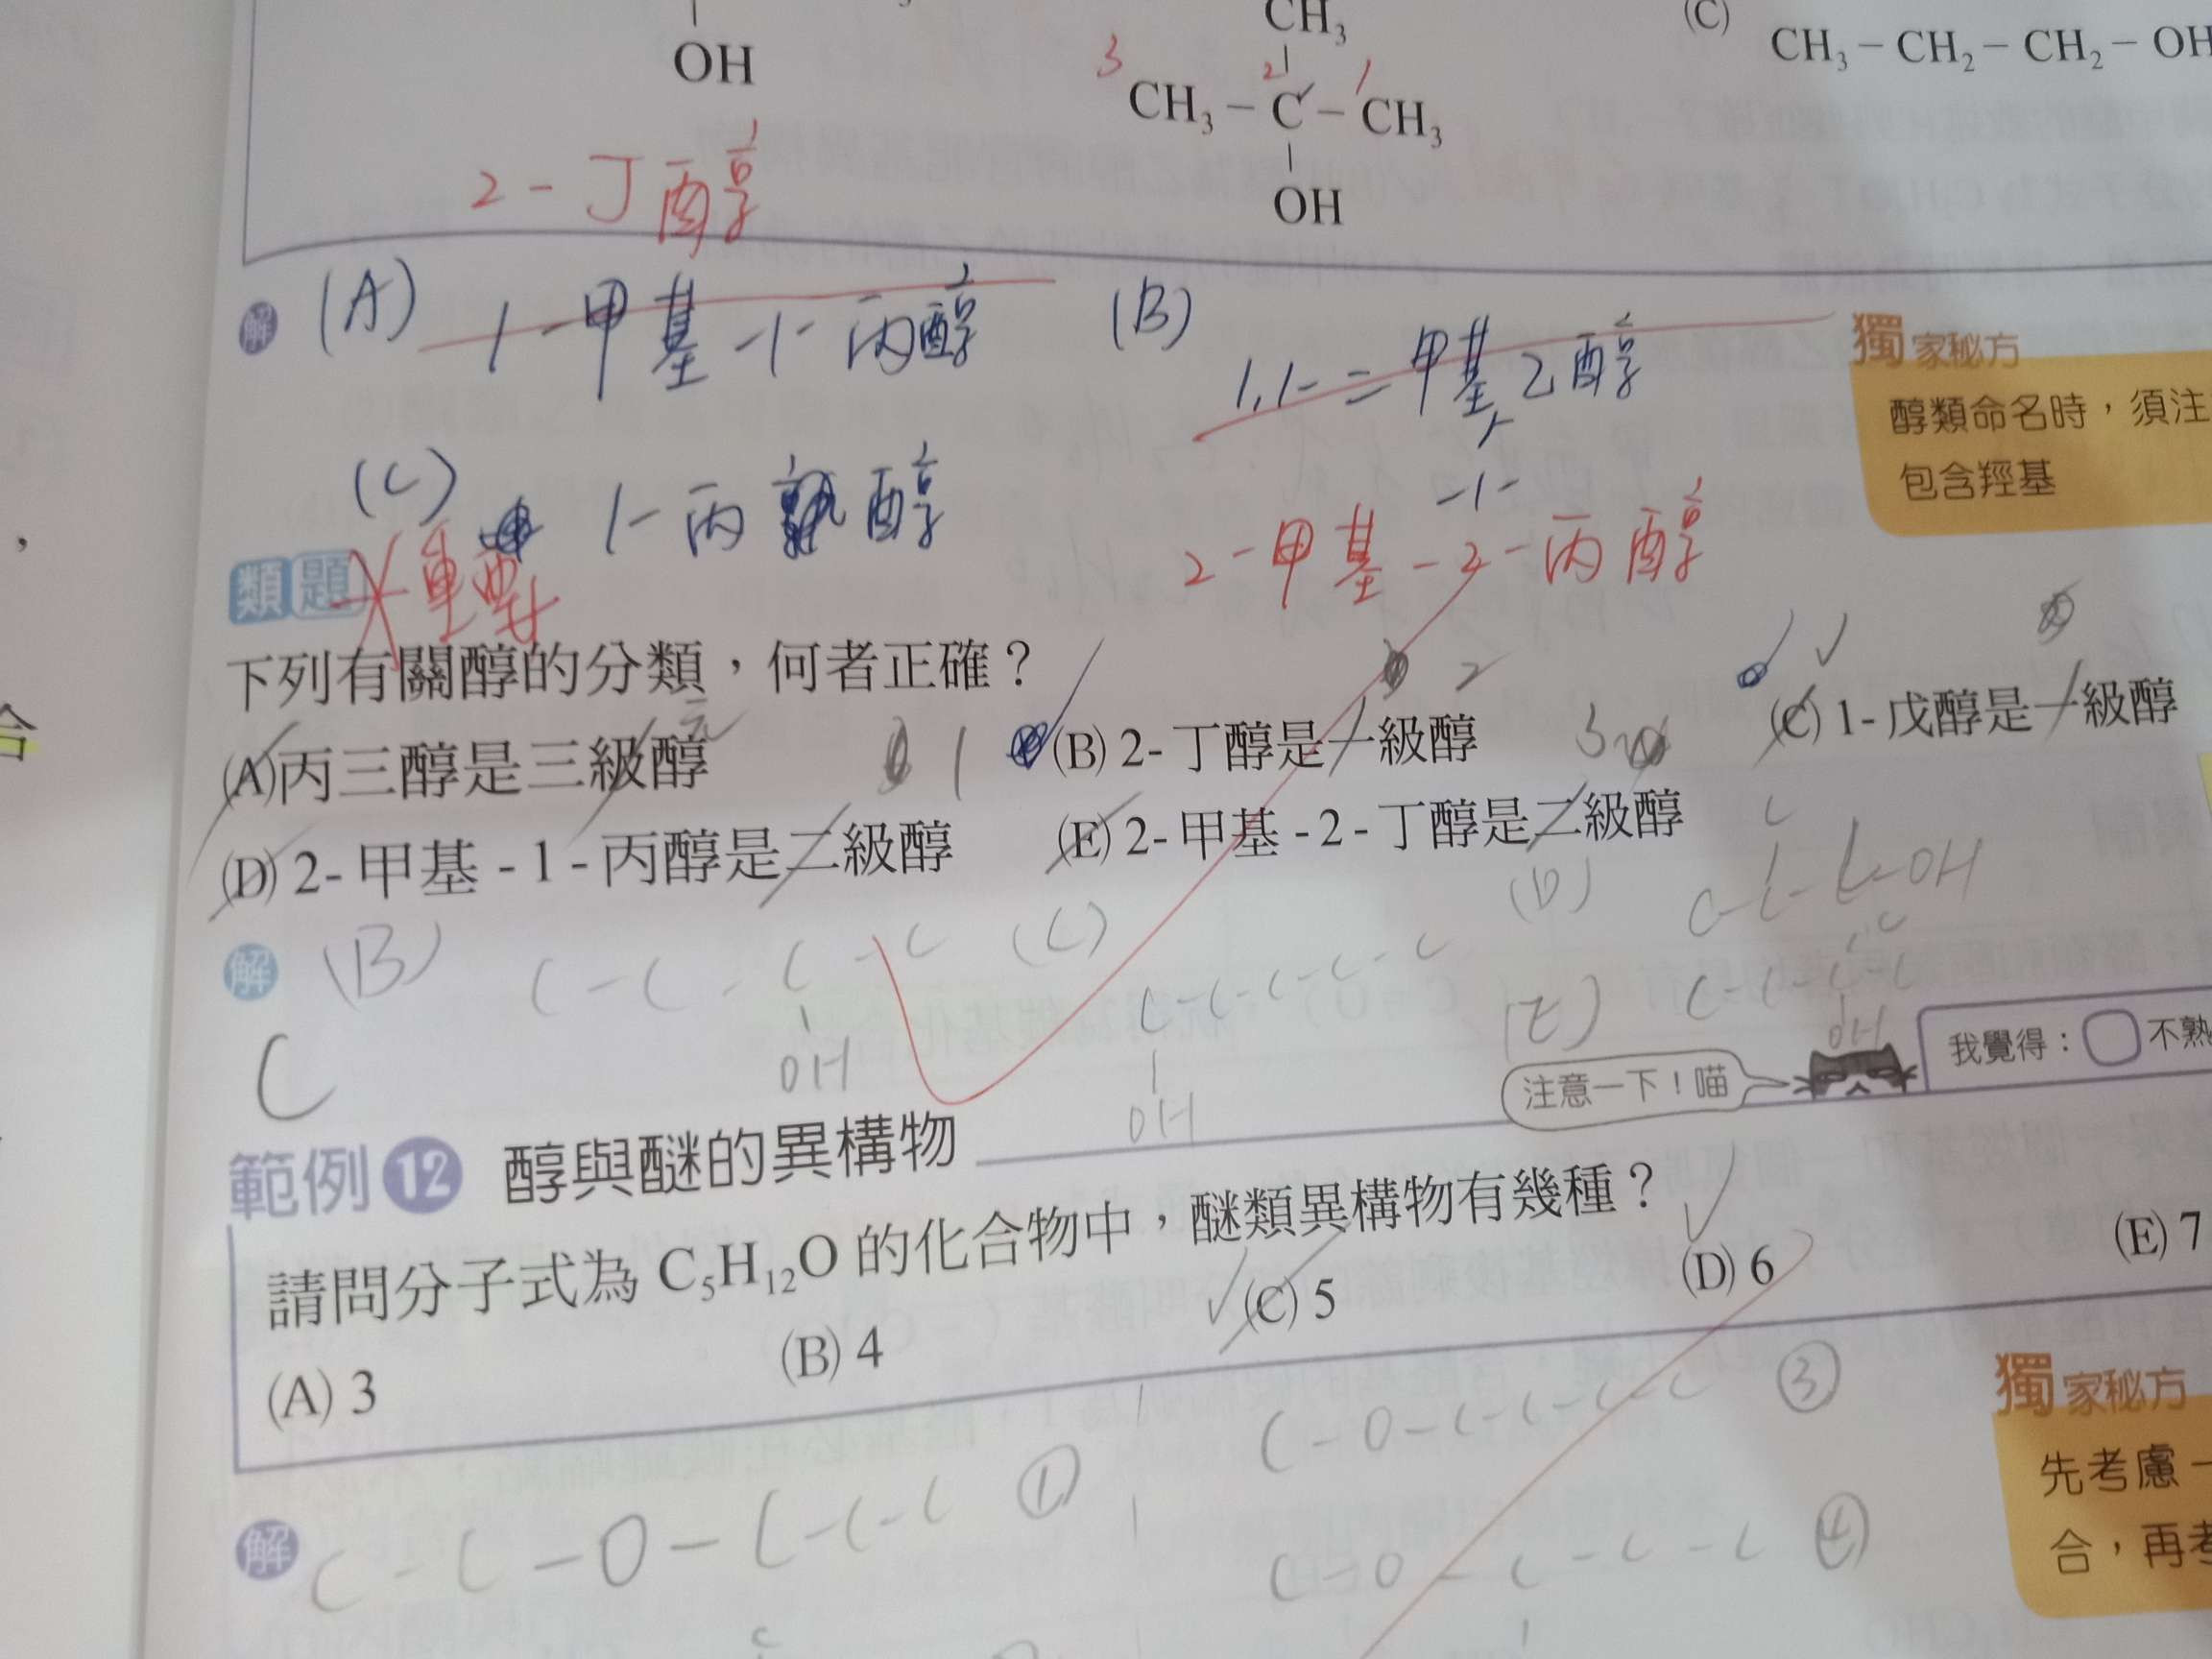 CH₃
(C)
OH
3
2
1
CH₃－C－CH₃
CH₃－CH₂－CH₂－OH
OH
2-丁醇
解 (A) 1-甲基-1-丙醇
(B) 1,1-二甲基乙醇
-1-
獨家秘方
醇類命名時，須注
包含羥基
(C) 1-丙醇
2-甲基-2-丙醇
類題 重要
下列有關醇的分類，何者正確？
元
(A)丙三醇是三級醇
(B) 2-丁醇是一級醇
(C) 1-戊醇是一級醇
1
2
3
(D) 2-甲基-1-丙醇是二級醇
(E) 2-甲基-2-丁醇是二級醇
解 (B) C-C-C-C
OH
(C) C-C-C-C-C
OH
(D) C
C-C-C-OH
(E) C
C-C-C-C
OH
C
注意一下！喵
我覺得：
不熟
範例12 醇與醚的異構物
請問分子式為 C₅H₁₂O 的化合物中，醚類異構物有幾種？
(A) 3
(B) 4
(C) 5
(D) 6
(E) 7
解 C-C-O-C-C-C ①
C-O-C-C-C-C ③
C-O-C-C-C ④
C
獨家秘方
先考慮一
合，再考